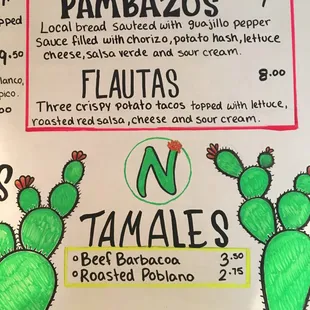 PAMBAZOS
Local bread sauteed with guajillo pepper
sauce filled with chorizo, potato hash, lettuce
cheese, salsa verde and sour cream.
9.50
FLAUTAS 8.00
Three crispy potato tacos topped with lettuce,
roasted red salsa, cheese and sour cream.
N
TAMALES
Beef Barbacoa 3.50
Roasted Poblano 2.75